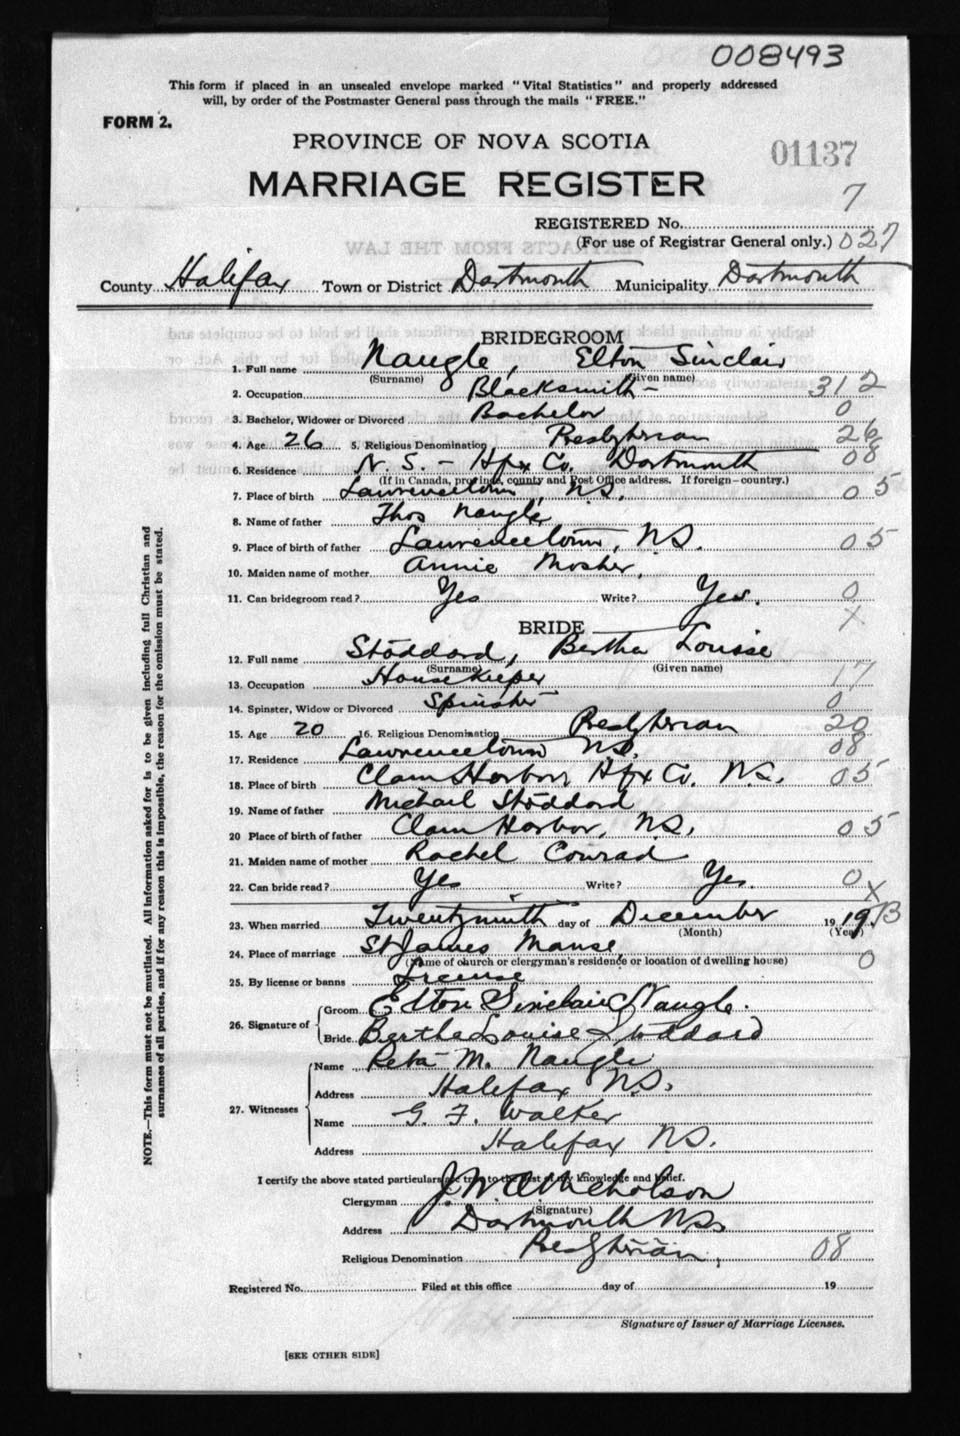 008493
This form if placed in an unsealed envelope marked "Vital Statistics" and properly addressed
will, by order of the Postmaster General pass through the mails "FREE."
FORM 2.
PROVINCE OF NOVA SCOTIA
01137
MARRIAGE REGISTER
7
REGISTERED No.
(For use of Registrar General only.) 027
County Halifax Town or District Dartmouth Municipality Dartmouth
BRIDEGROOM
1. Full name Naugle, Elton Sinclair
(Surname) (Given name)
2. Occupation Blacksmith 312
3. Bachelor, Widower or Divorced Bachelor 0
4. Age 26 5. Religious Denomination Presbyterian 26
6. Residence N.S. - Hfx Co. Dartmouth 08
(If in Canada, province, county and Post Office address. If foreign—country.)
7. Place of birth Lawrencetown, N.S. 05
8. Name of father Thos Naugle
9. Place of birth of father Lawrencetown, N.S. 05
10. Maiden name of mother Annie Mosher,
11. Can bridegroom read? Yes Write? Yes. 0
X
BRIDE
12. Full name Stoddard, Bertha Louise
(Surname) (Given name)
13. Occupation Housekeeper 17
14. Spinster, Widow or Divorced Spinster 0
15. Age 20 16. Religious Denomination Presbyterian 20
17. Residence Lawrencetown N.S. 08
18. Place of birth Clam Harbour, Hfx Co. N.S. 05
19. Name of father Michael Stoddard
20 Place of birth of father Clam Harbor, N.S. 05
21. Maiden name of mother Rachel Conrad
22. Can bride read? Yes Write? Yes. 0
X
23. When married Twentyninth day of December 19 19. 13
(Month) (Year)
24. Place of marriage St James Manse, 0
(Name of church or clergyman's residence or location of dwelling house)
25. By license or banns License
26. Signature of Groom Elton Sinclair Naugle.
Bride Bertha Louise Stoddard
27. Witnesses Name Reta M. Naugle
Address Halifax N.S.
Name G. F. Walker
Address Halifax N.S.
I certify the above stated particulars are true to the best of my knowledge and belief.
Clergyman J. W. A. Nicholson
(Signature)
Address Dartmouth N.S.
Religious Denomination Presbyterian, 08
Registered No. Filed at this office day of 19
Signature of Issuer of Marriage Licenses.
[SEE OTHER SIDE]
NOTE.—This form must not be mutilated. All information asked for is to be given including full Christian and
surnames of all parties, and if for any reason this is impossible, the reason for the omission must be stated.